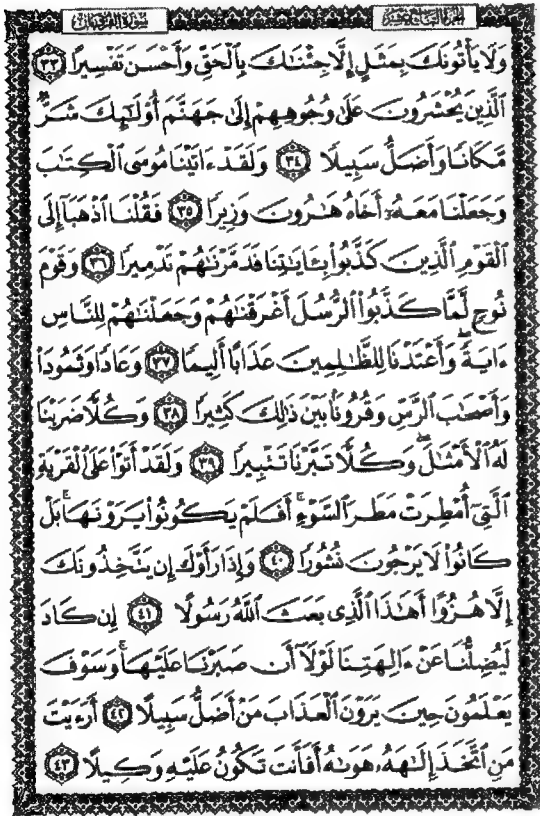 الجزء التاسع عشر
سورة الفرقان
وَلَا يَأْتُونَكَ بِمَثَلٍ إِلَّا جِئْنَاكَ بِالْحَقِّ وَأَحْسَنَ تَفْسِيرًا ٣٣
الَّذِينَ يُحْشَرُونَ عَلَىٰ وُجُوهِهِمْ إِلَىٰ جَهَنَّمَ أُوْلَٰئِكَ شَرٌّ
مَّكَانًا وَأَضَلُّ سَبِيلًا ٣٤ وَلَقَدْ ءَاتَيْنَا مُوسَى الْكِتَٰبَ
وَجَعَلْنَا مَعَهُۥٓ أَخَاهُ هَٰرُونَ وَزِيرًا ٣٥ فَقُلْنَا اذْهَبَآ إِلَى
الْقَوْمِ الَّذِينَ كَذَّبُوا۟ بِـَٔايَٰتِنَا فَدَمَّرْنَٰهُمْ تَدْمِيرًا ٣٦ وَقَوْمَ
نُوحٍ لَّمَّا كَذَّبُوا۟ الرُّسُلَ أَغْرَقْنَٰهُمْ وَجَعَلْنَٰهُمْ لِلنَّاسِ
ءَايَةً وَأَعْتَدْنَا لِلظَّٰلِمِينَ عَذَابًا أَلِيمًا ٣٧ وَعَادًا وَثَمُودَا۟
وَأَصْحَٰبَ الرَّسِّ وَقُرُونًۢا بَيْنَ ذَٰلِكَ كَثِيرًا ٣٨ وَكُلًّا ضَرَبْنَا
لَهُ الْأَمْثَٰلَ وَكُلًّا تَبَّرْنَا تَتْبِيرًا ٣٩ وَلَقَدْ أَتَوْا۟ عَلَى الْقَرْيَةِ
الَّتِىٓ أُمْطِرَتْ مَطَرَ السَّوْءِ أَفَلَمْ يَكُونُوا۟ يَرَوْنَهَا بَلْ
كَانُوا۟ لَا يَرْجُونَ نُشُورًا ٤٠ وَإِذَا رَأَوْكَ إِن يَتَّخِذُونَكَ
إِلَّا هُزُوًا أَهَٰذَا الَّذِى بَعَثَ اللَّهُ رَسُولًا ٤١ إِن كَادَ
لَيُضِلُّنَا عَنْ ءَالِهَتِنَا لَوْلَآ أَن صَبَرْنَا عَلَيْهَا وَسَوْفَ
يَعْلَمُونَ حِينَ يَرَوْنَ الْعَذَابَ مَنْ أَضَلُّ سَبِيلًا ٤٢ أَرَءَيْتَ
مَنِ اتَّخَذَ إِلَٰهَهُۥ هَوَىٰهُ أَفَأَنتَ تَكُونُ عَلَيْهِ وَكِيلًا ٤٣